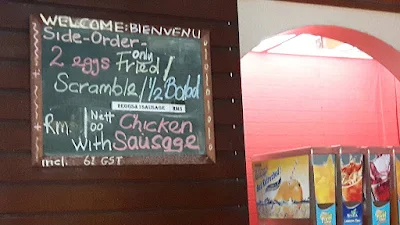 WELCOME:BIENVENU
Side-Order-
2 eggs only Fried/
Scramble/½ Boiled
Rm. 1 Nett Chicken
00 With Sausage
incl. 6% GST